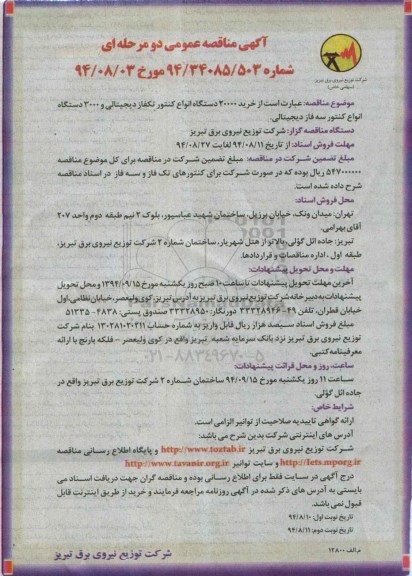 آگهی مناقصه عمومی دو مرحله ای
شماره ۹۴/۳۴۰۸۵/۵۰۳ مورخ ۹۴/۰۸/۰۳
شرکت توزیع نیروی برق تبریز
(سهامی خاص)
موضوع مناقصه: عبارت است از خرید ۲۰۰۰۰ دستگاه انواع کنتور تکفاز دیجیتالی و ۳۰۰۰ دستگاه
انواع کنتور سه فاز دیجیتالی.
دستگاه مناقصه گزار: شرکت توزیع نیروی برق تبریز
مهلت فروش اسناد: از تاریخ ۹۴/۰۸/۱۱ لغایت ۹۴/۰۸/۲۷
مبلغ تضمین شرکت در مناقصه: مبلغ تضمین شرکت در مناقصه برای کل موضوع مناقصه
ریال بوده که در صورت شرکت برای کنتورهای تک فاز و سه فاز در اسناد مناقصه
شرح داده شده است.
محل فروش اسناد:
تهران: میدان ونک، خیابان برزیل، ساختمان شهید عباسپور، بلوک ۲ نیم طبقه دوم واحد ۲۰۷
آقای بهرامی.
تبریز: جاده ائل گؤلی، بالاتر از هتل شهریار، ساختمان شماره ۲ شرکت توزیع نیروی برق تبریز،
طبقه اول، اداره مناقصات و قراردادها.
مهلت و محل تحویل پیشنهادات:
آخرین مهلت تحویل پیشنهادات تا ساعت ۱۰ صبح روز یکشنبه مورخ ۱۳۹۴/۰۹/۱۵ و محل تحویل
پیشنهادات به دبیرخانه شرکت توزیع نیروی برق تبریز به آدرس تبریز کوی ولیعصر، خیابان نظامی، اول
خیابان قطران، تلفن ۴۹-۳۳۳۲۸۹۴۶ دورنگار: ۳۳۳۲۸۹۵۰ صندوق پستی: ۴۸۳۸-۵۱۳۳۵
مبلغ فروش اسناد سیصد هزار ریال قابل واریز به شماره حساب بنام شرکت
توزیع نیروی برق تبریز نزد بانک سرمایه شعبه تبریز واقع در کوی ولیعصر - فلکه بارنج با ارائه
معرفینامه کتبی.
ساعت، روز و محل قرائت پیشنهادات:
ساعت ۱۱ روز یکشنبه مورخ ۹۴/۰۹/۱۵ ساختمان شماره ۲ شرکت توزیع برق تبریز واقع در
جاده ائل گؤلی.
شرایط خاص:
ارائه گواهی تاییدیه صلاحیت از توانیر الزامی است.
آدرس های اینترنتی شرکت بدین شرح می باشد:
شرکت توزیع نیروی برق تبریز http://www.toztab.ir و پایگاه اطلاع رسانی مناقصه
http://Iets.mporg.ir و سایت توانیر http://www.tavanir.org.ir
درج آگهی در سایت فقط برای اطلاع رسانی بوده و مناقصه گران جهت دریافت اسناد می
بایستی به آدرس های ذکر شده در آگهی روزنامه مراجعه فرمایند و خرید از طریق اینترنت قابل
قبول نمی باشد.
تاریخ نوبت اول: ۹۴/۸/۱۰
تاریخ نوبت دوم: ۹۴/۸/۱۱
م الف ۱۲۸۰۰
شرکت توزیع نیروی برق تبریز
۰۲۱-۸۸۳۴۹۶۷۰-۵